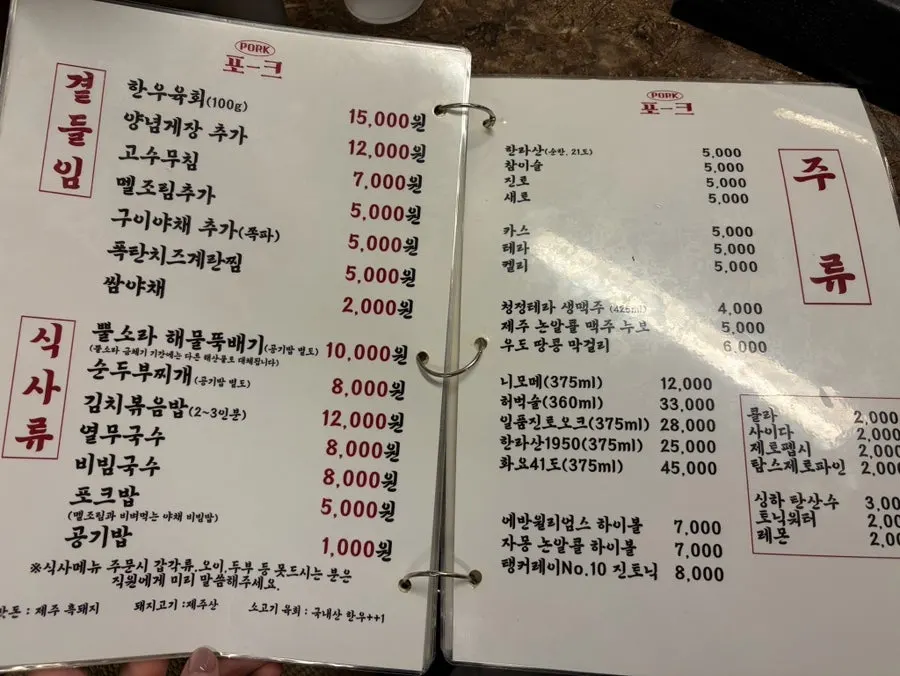 PORK
포-크
곁들임
한우육회(100g) 15,000원
양념게장 추가 12,000원
고수무침 7,000원
멜조림추가 5,000원
구이야채 추가(쪽파) 5,000원
폭탄치즈계란찜 5,000원
쌈야채 2,000원
식사류
뿔소라 해물뚝배기(공기밥 별도) 10,000원
(뿔소라 금채기 기간에는 다른 해산물로 대체됩니다)
순두부찌개(공기밥 별도) 8,000원
김치볶음밥(2~3인분) 12,000원
열무국수 8,000원
비빔국수 8,000원
포크밥 5,000원
(멜조림과 비벼먹는 야채 비빔밥)
공기밥 1,000원
※식사메뉴 주문시 갑각류.오이.두부 등 못드시는 분은
직원에게 미리 말씀해주세요.
: 제주 흑돼지 돼지고기 :제주산 소고기 육회 : 국내산 한우++1
PORK
포-크
주류
한라산(순한, 21도) 5,000
참이슬 5,000
진로 5,000
새로 5,000
카스 5,000
테라 5,000
켈리 5,000
청정테라 생맥주 (425ml) 4,000
제주 논알콜 맥주 누보 5,000
우도 땅콩 막걸리 6,000
니모메(375ml) 12,000
허벅술(360ml) 33,000
일품진로오크(375ml) 28,000
한라산1950(375ml) 25,000
화요41도(375ml) 45,000
에반윌리엄스 하이볼 7,000
자몽 논알콜 하이볼 7,000
탱커레이No.10 진토닉 8,000
콜라 2,000
사이다 2,000
제로펩시 2,000
탐스제로파인 2,000
싱하 탄산수 3,00
토닉워터 2,00
레몬 2,0